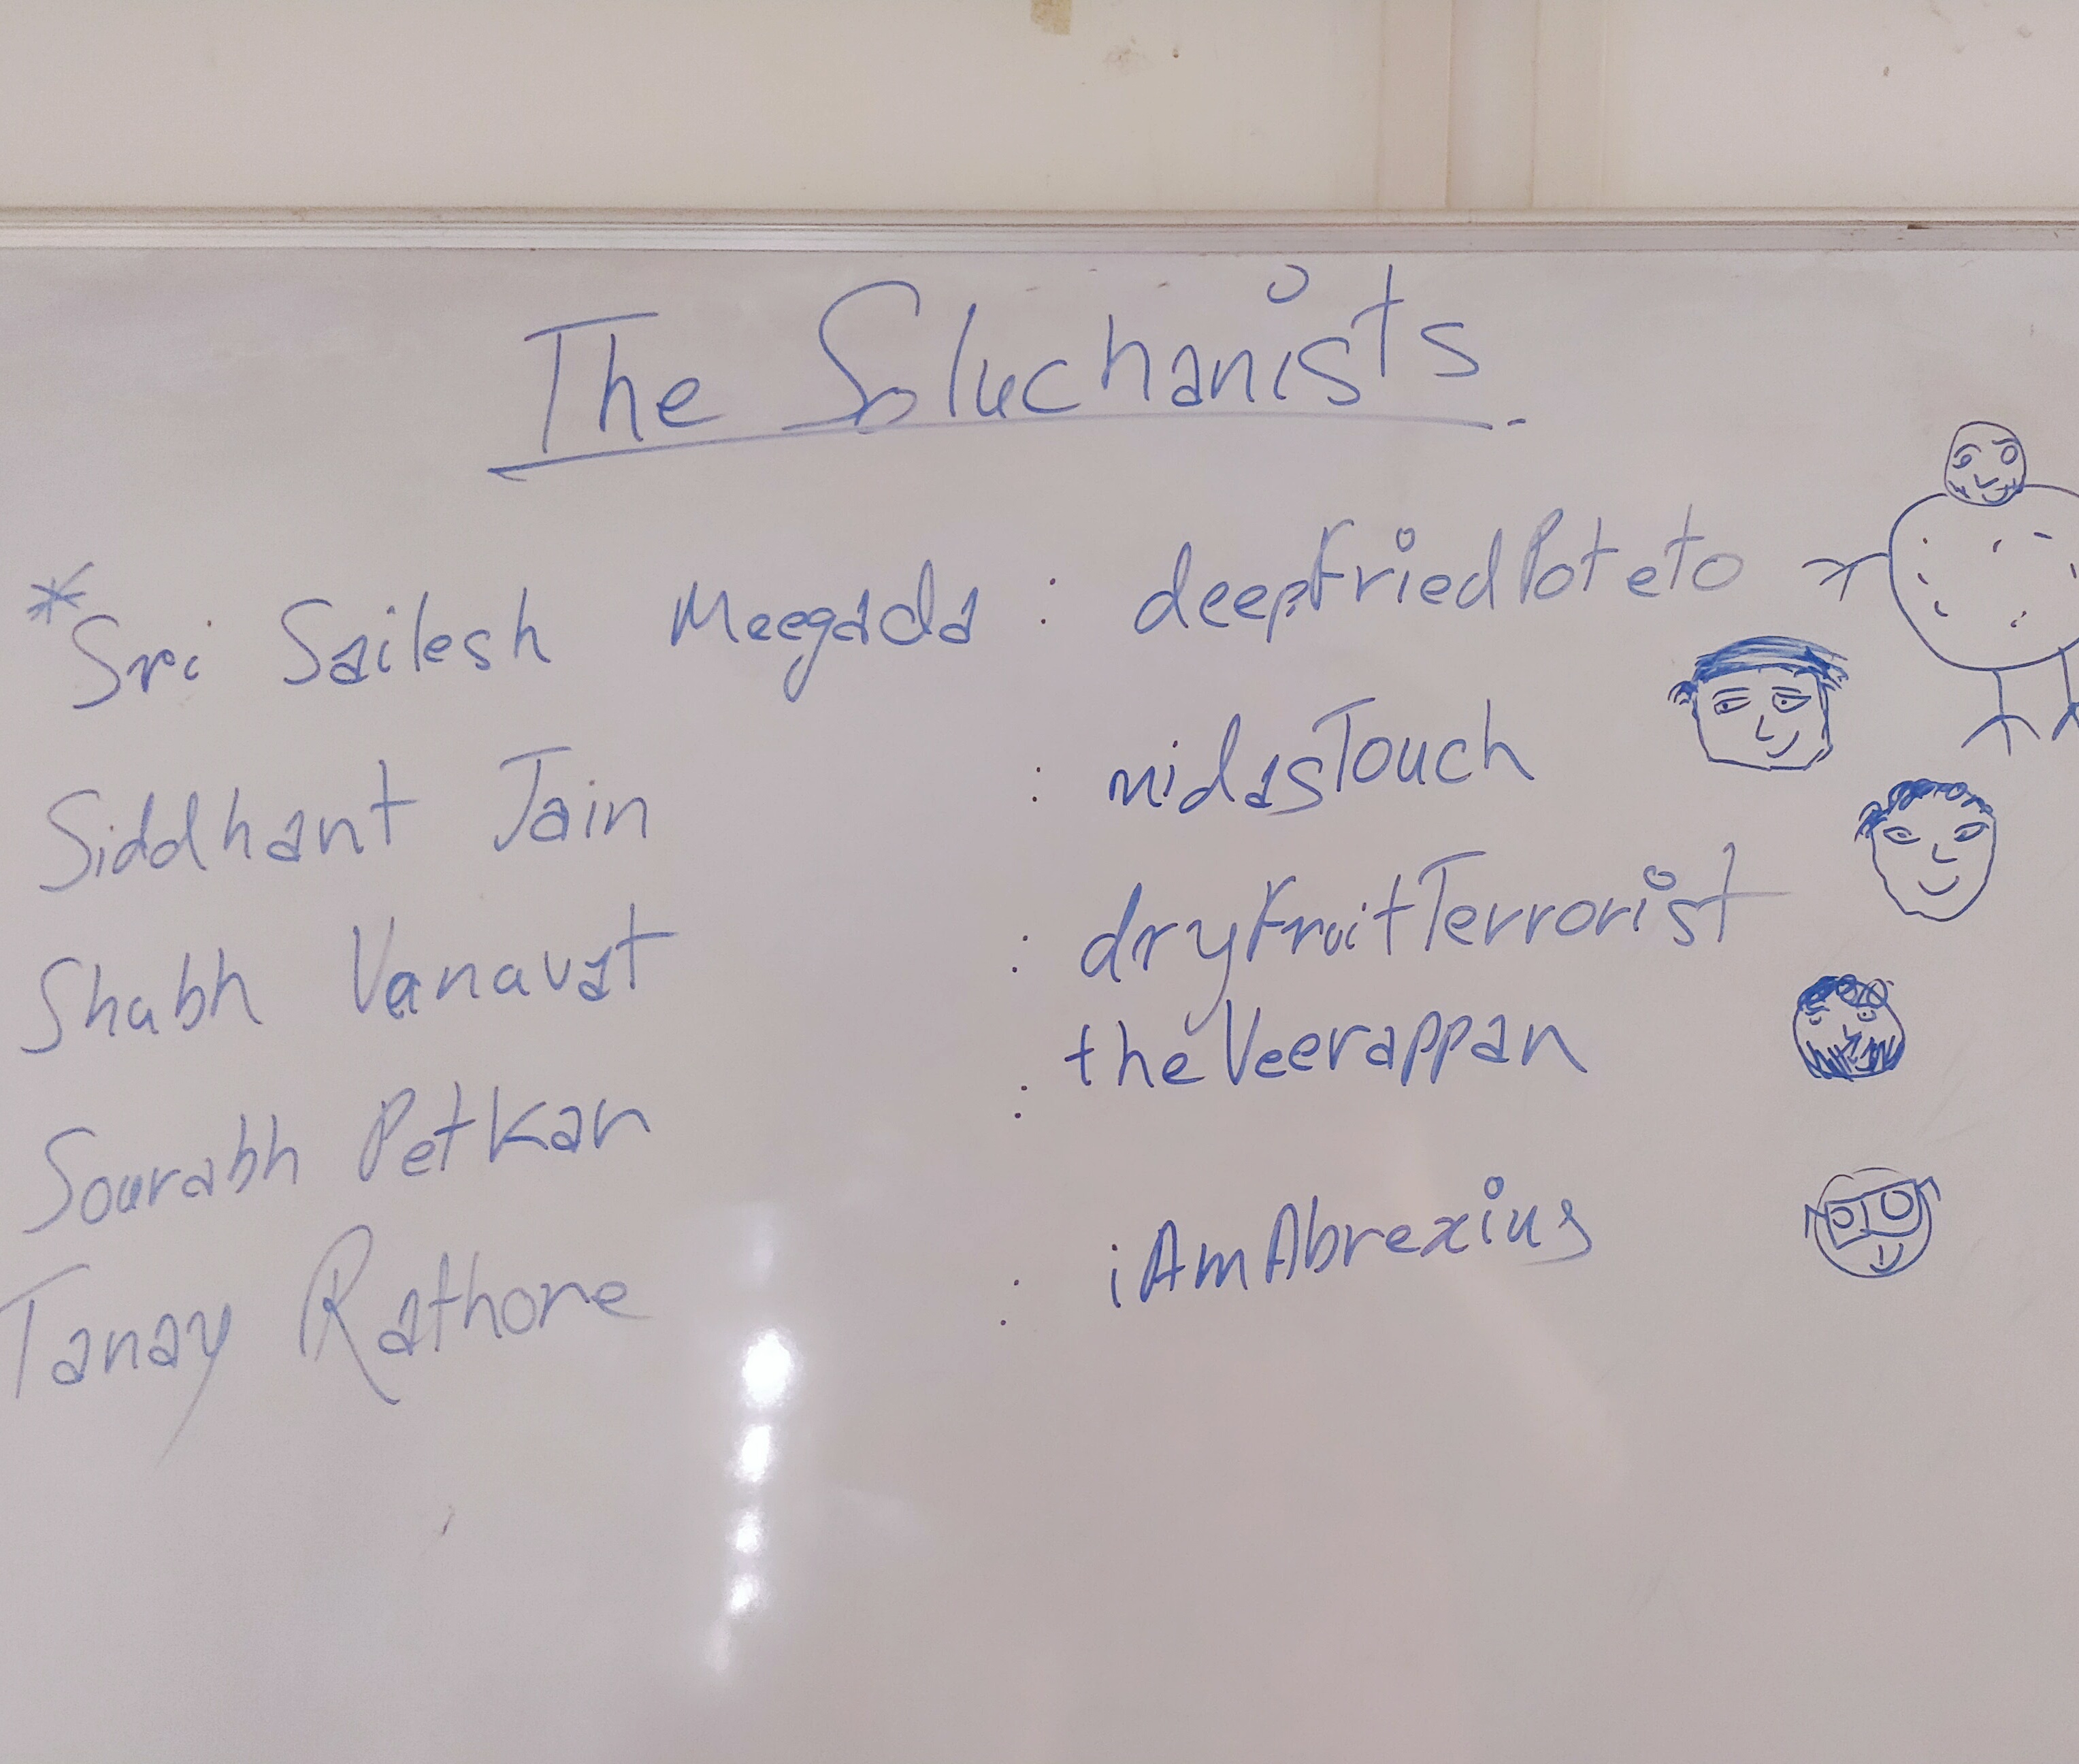 The Soluchanists
*Sri Sailesh Meegada : deepFriedPoteto
Siddhant Jain : midasTouch
Shubh Vanavat : dryFruitTerrorist
Sourabh Petkar : theVeerappan
Tanay Rathore : iAmAbrexius